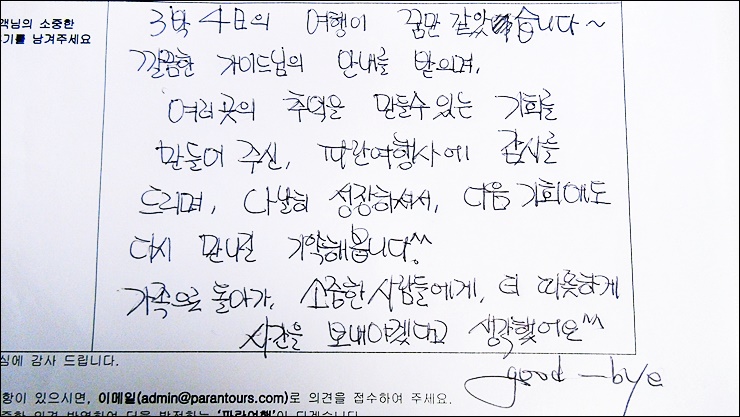 객님의 소중한
기를 남겨주세요
3박 4일의 여행이 꿈만 같았습니다~
깔끔한 가이드님의 안내를 받으며,
여러곳의 추억을 만들수 있는 기회를
만들어 주신, 파란여행사에 감사를
드리며, 나날이 성장하셔서, 다음 기회에도
다시 만나길 기약해봅니다^^
가족으로 돌아가, 소중한 사람들에게, 더 따뜻하게
시간을 보내야겠다고 생각했어요^^
good-bye
심에 감사 드립니다.
항이 있으시면, 이메일(admin@parantours.com)로 의견을 접수하여 주세요.